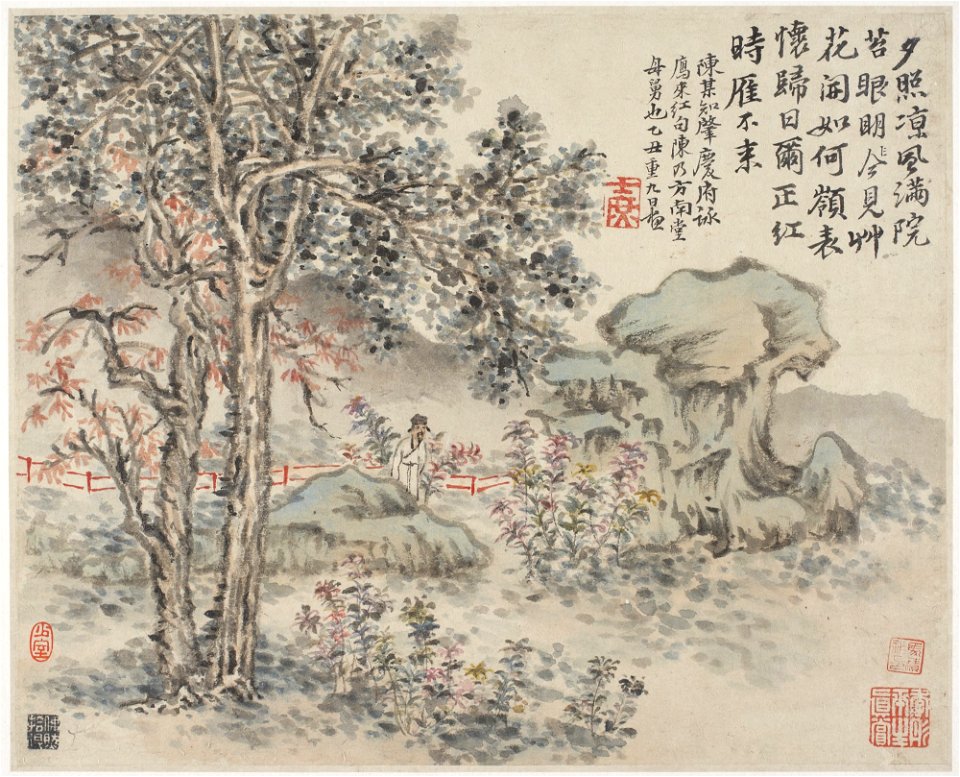 夕照凉風滿院
苔眼明今見艸
花開如何嶺表
懷歸日爾正紅
時雁不来
陳某知肇慶府詠
鴈来红句陳乃方南堂
母舅也乙丑重九日画